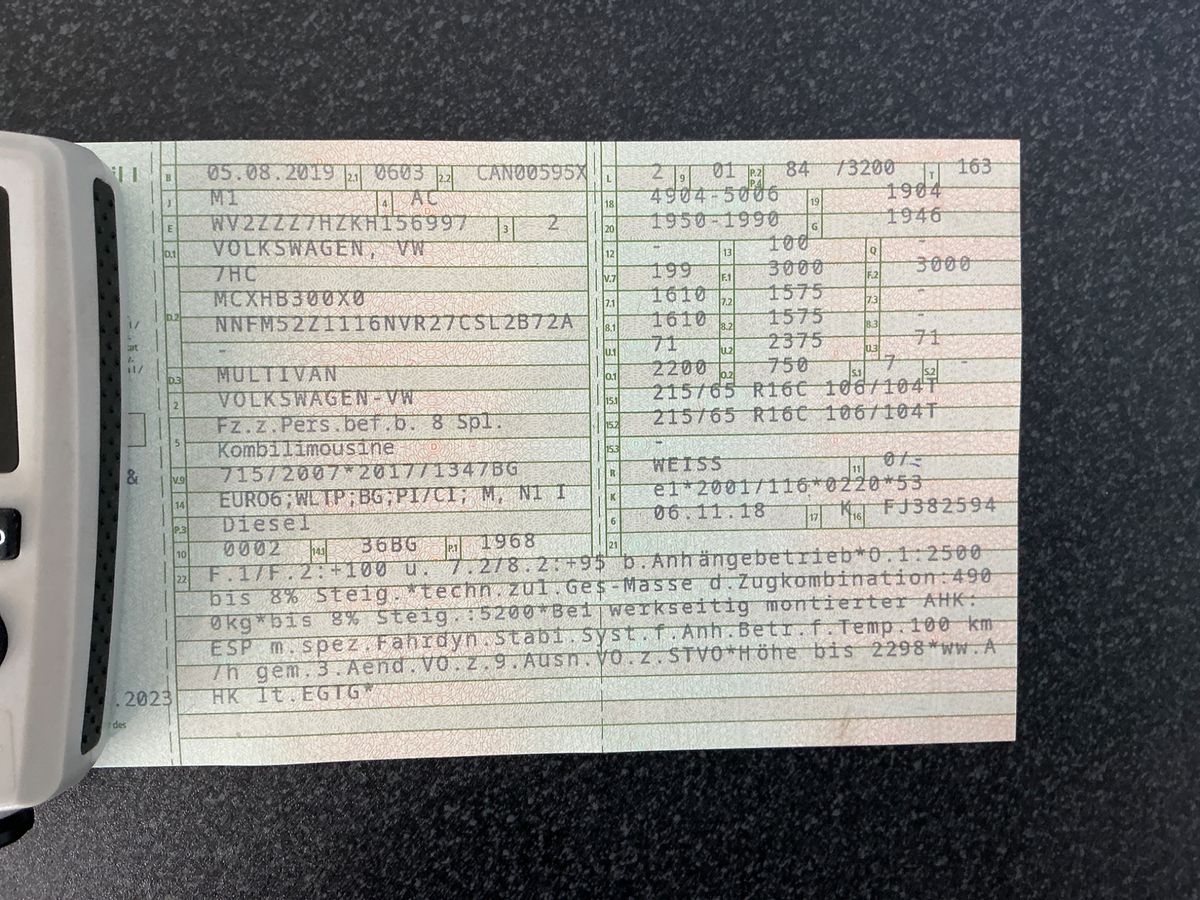 B 05.08.2019 2.1 0603 2.2 CAN00595X
J M1 4 AC
E WV2ZZZ7HZKH156997 3 2
D.1 VOLKSWAGEN, VW
7HC
D.2 MCXHB300X0
NNFM52Z1116NVR27CSL2B72A
-
D.3 MULTIVAN
2 VOLKSWAGEN-VW
5 Fz.z.Pers.bef.b. 8 Spl.
Kombilimousine
V.9 715/2007*2017/1347BG
14 EURO6;WLTP;BG;PI/CI; M, N1 I
P.3 Diesel
10 0002 14.1 36BG P.1 1968
L 2 9 01 P.2 P.4 84 /3200 T 163
18 4904-5006 19 1904
20 1950-1990 G 1946
12 - 13 100 Q -
V.7 199 F.1 3000 F.2 3000
7.1 1610 7.2 1575 7.3 -
8.1 1610 8.2 1575 8.3 -
U.1 71 U.2 2375 U.3 71
O.1 2200 O.2 750 S.1 7 S.2 -
15.1 215/65 R16C 106/104T
15.2 215/65 R16C 106/104T
15.3 -
R WEISS 11 0/-
K e1*2001/116*0220*53
6 06.11.18 17 K 16 FJ382594
21
22 F.1/F.2:+100 u. 7.2/8.2:+95 b.Anhängebetrieb*O.1:2500
bis 8% Steig.*techn.zul.Ges-Masse d.Zugkombination:490
0kg*bis 8% Steig.:5200*Bei werkseitig montierter AHK:
ESP m.spez.Fahrdyn.Stabi.Syst.f.Anh.Betr.f.Temp.100 km
/h gem.3.Aend.VO.z.9.Ausn.VO.z.STVO*Höhe bis 2298*ww.A
HK lt.EGTG*
&
.2023
des